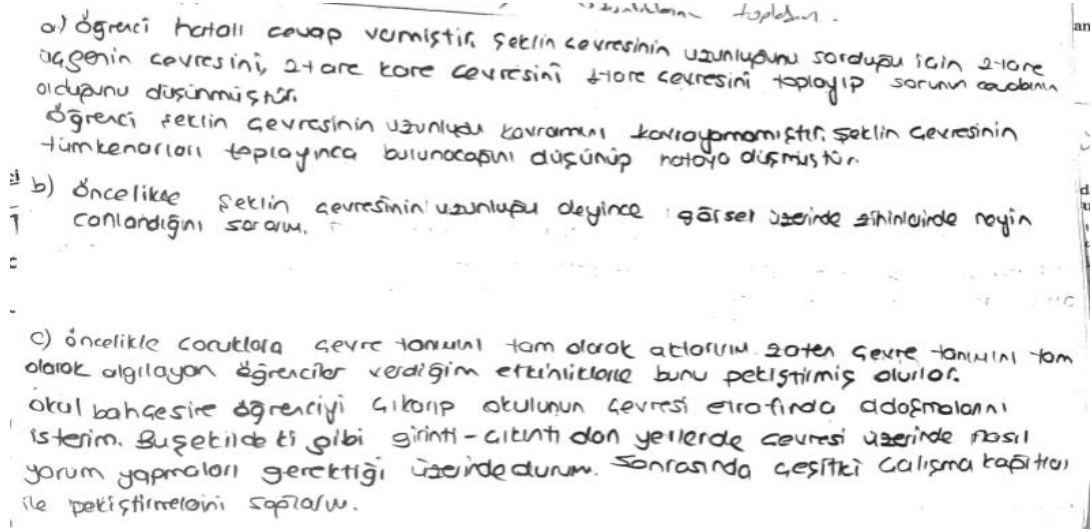 toplasın.
a) Öğrenci hatalı cevap vermiştir. Şeklin çevresinin uzunluğunu sorduğu için 2 tane
üçgenin çevresini, 2 tane kare çevresini 1 tane çevresini toplayıp sorunun cevabının
olduğunu düşünmüştür.
Öğrenci şeklin çevresinin uzunluğu kavramını kavrayamamıştır. Şeklin çevresinin
tüm kenarları toplayınca bulunacağını düşünüp hataya düşmüştür.
b) öncelikle şeklin çevresinin uzunluğu deyince görsel üzerinde zihinlerinde neyin
canlandığını sorarım.
c) öncelikle çocuklara çevre tanımını tam olarak aktarırım. zaten çevre tanımını tam
olarak algılayan öğrenciler verdiğim etkinliklerle bunu pekiştirmiş olurlar.
okul bahçesine öğrenciyi çıkarıp okulunun çevresi etrafında dolaşmalarını
isterim. Bu şekildeki gibi girinti-çıkıntı olan yerlerde çevresi üzerinde nasıl
yorum yapmaları gerektiği üzerinde dururum. Sonrasında çeşitli çalışma kağıtları
ile pekiştirmelerini sağlarım.